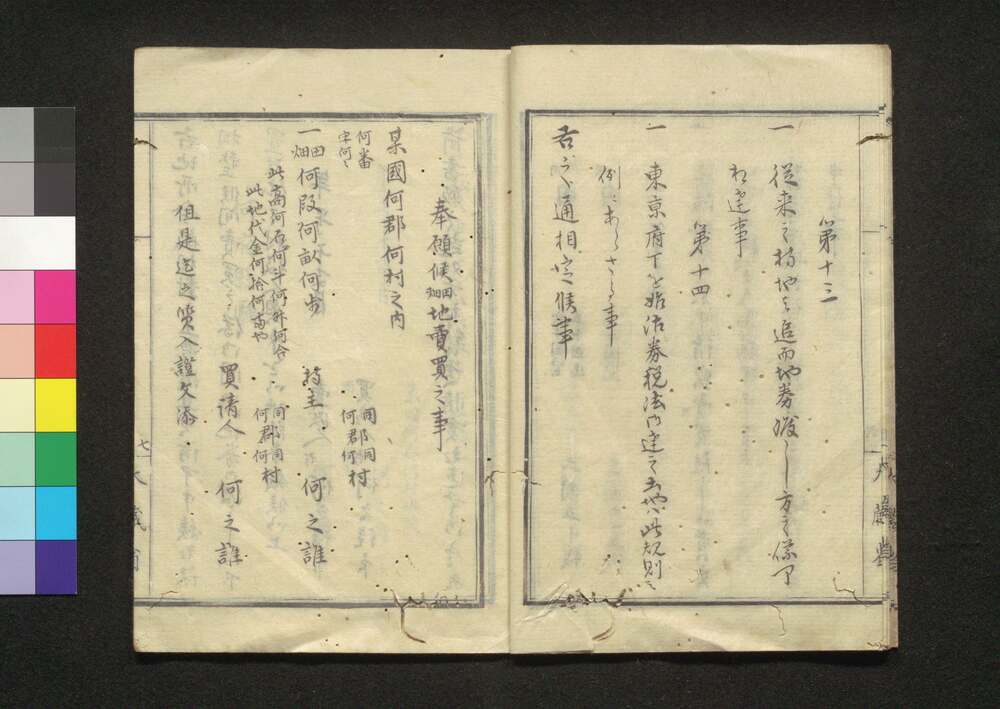 第十三
一 従来之持地ハ追而地券渡し方之儀可
相達事
第十四
一 東京府下を始沽券税法内達之土地ハ此規則之
例ニあらさる事
右之通相定候事
奉願候田畑地賣買之事
某國何郡何村之内
何番
字何々
一田畑何段何畝何歩
持主
同郡同村
何郡何村
何之誰
此高何石何斗何升何合
此地代金何拾何両也
買請人
同郡同村
何郡何村
何之誰
但是迄之質入證文添
七
大蔵省